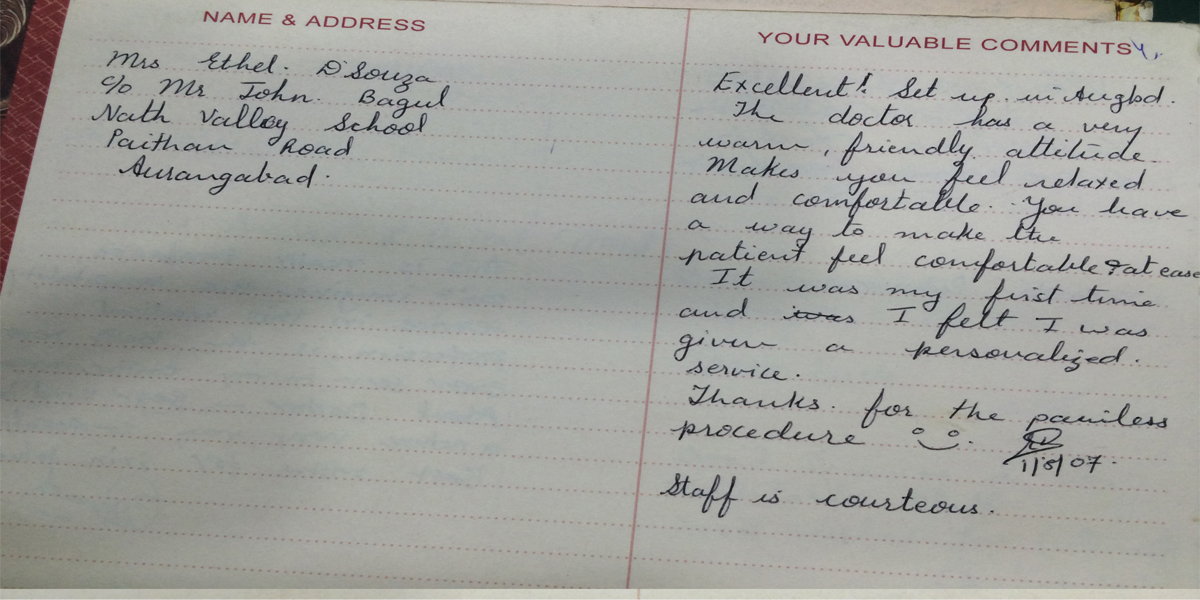 NAME & ADDRESS
Mrs Ethel. D'Souza
c/o Mr John. Bagul
Nath Valley School
Paithan Road
Aurangabad.
YOUR VALUABLE COMMENTS
Excellent! Set up in Augbd.
The doctor has a very
warm, friendly attitude.
Makes you feel relaxed
and comfortable. You have
a way to make the
patient feel comfortable & at ease
It was my first time
and I felt I was
given a personalized.
service.
Thanks. for the painless
procedure
1/8/07.
Staff is courteous.